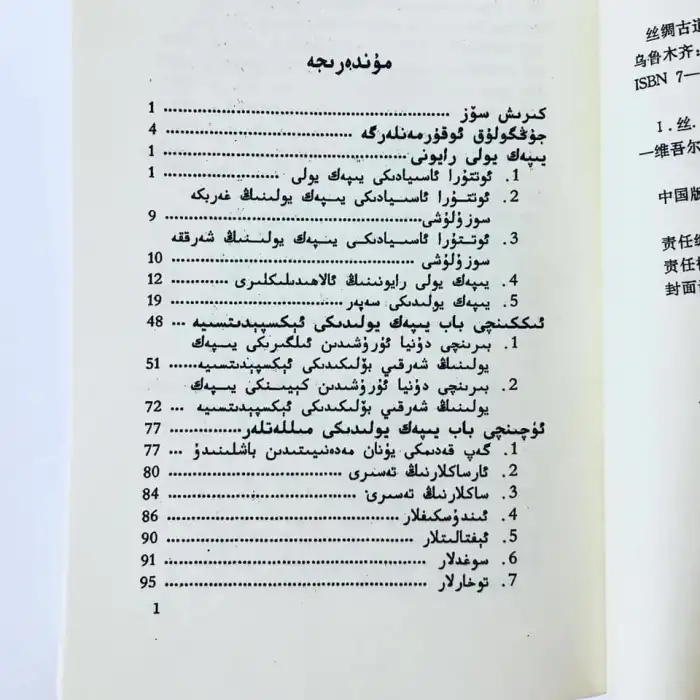 مۇندەرىجە
كىرىش سۆز ........ 1
جۇڭگولۇق ئوقۇرمەنلەرگە ........ 4
يىپەك يولى رايونى ........ 1
1. ئوتتۇرا ئاسىيادىكى يىپەك يولى ........ 1
2. ئوتتۇرا ئاسىيادىكى يىپەك يولىنىڭ غەربكە
سوزۇلۇشى ........ 9
3. ئوتتۇرا ئاسىيادىكى يىپەك يولىنىڭ شەرققە
سوزۇلۇشى ........ 10
4. يىپەك يولى رايونىنىڭ ئالاھىدىلىكلىرى ........ 12
5. يىپەك يولىدىكى سەپەر ........ 19
ئىككىنچى باب يىپەك يولىدىكى ئېكسپېدىتسىيە ... 48
1. بىرىنچى دۇنيا ئۇرۇشىدىن ئىلگىرىكى يىپەك
يولىنىڭ شەرقىي بۆلىكىدىكى ئېكسپېدىتسىيە ...... 51
2. بىرىنچى دۇنيا ئۇرۇشىدىن كېيىنكى يىپەك
يولىنىڭ شەرقىي بۆلىكىدىكى ئېكسپېدىتسىيە ... 72
ئۈچىنچى باب يىپەك يولىدىكى مىللەتلەر ........ 77
1. گەپ قەدىمكى يۇنان مەدەنىيىتىدىن باشلىنىدۇ ... 77
2. ئارساكلارنىڭ تەسىرى ........ 80
3. ساكلارنىڭ تەسىرى ........ 84
4. ئىندۇسكىفلار ........ 86
5. ئېفتالىتلار ........ 90
6. سوغدلار ........ 91
7. توخارلار ........ 95
1
丝绸古道
乌鲁木齐:
ISBN 7—
Ⅰ.丝.
—维吾尔
中国版
责任编
责任校
封面设